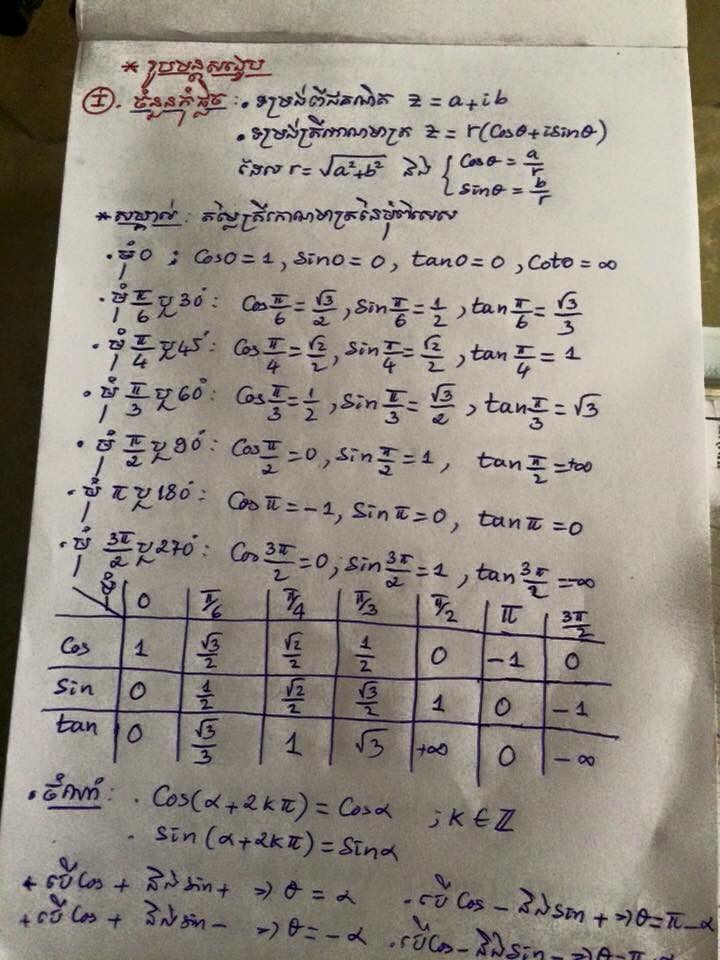 * រូបមន្តសង្ខេប
I. ចំនួនកុំផ្លិច : • ទម្រង់ពីជគណិត z = a+ib
• ទម្រង់ត្រីកោណមាត្រ z = r(Cosθ+isinθ)
ដែល r = √a²+b² និង { Cosθ = a/r
Sinθ = b/r
* សម្គាល់ : តម្លៃត្រីកោណមាត្រនៃមុំពិសេស
• មុំ 0 : Cos0 = 1, Sin0 = 0, tan0 = 0, Cot0 = ∞
• មុំ π/6 ឬ 30° : Cos π/6 = √3/2, Sin π/6 = 1/2, tan π/6 = √3/3
• មុំ π/4 ឬ 45° : Cos π/4 = √2/2, Sin π/4 = √2/2, tan π/4 = 1
• មុំ π/3 ឬ 60° : Cos π/3 = 1/2, Sin π/3 = √3/2, tan π/3 = √3
• មុំ π/2 ឬ 90° : Cos π/2 = 0, Sin π/2 = 1, tan π/2 = +∞
• មុំ π ឬ 180° : Cos π = -1, Sin π = 0, tan π = 0
• មុំ 3π/2 ឬ 270° : Cos 3π/2 = 0, Sin 3π/2 = 1, tan 3π/2 = -∞
មុំ 0 π/6 π/4 π/3 π/2 π 3π/2
Cos 1 √3/2 √2/2 1/2 0 -1 0
Sin 0 1/2 √2/2 √3/2 1 0 -1
tan 0 √3/3 1 √3 +∞ 0 -∞
• ចំណាំ : • Cos(α+2kπ) = Cosα ; k ∈ ℤ
• Sin(α+2kπ) = Sinα
+ បើ Cos + និង sin+ => θ = α • បើ Cos - និង Sin + => θ = π-α
+ បើ Cos + និង Sin - => θ = -α • បើ Cos - និង Sin - =>